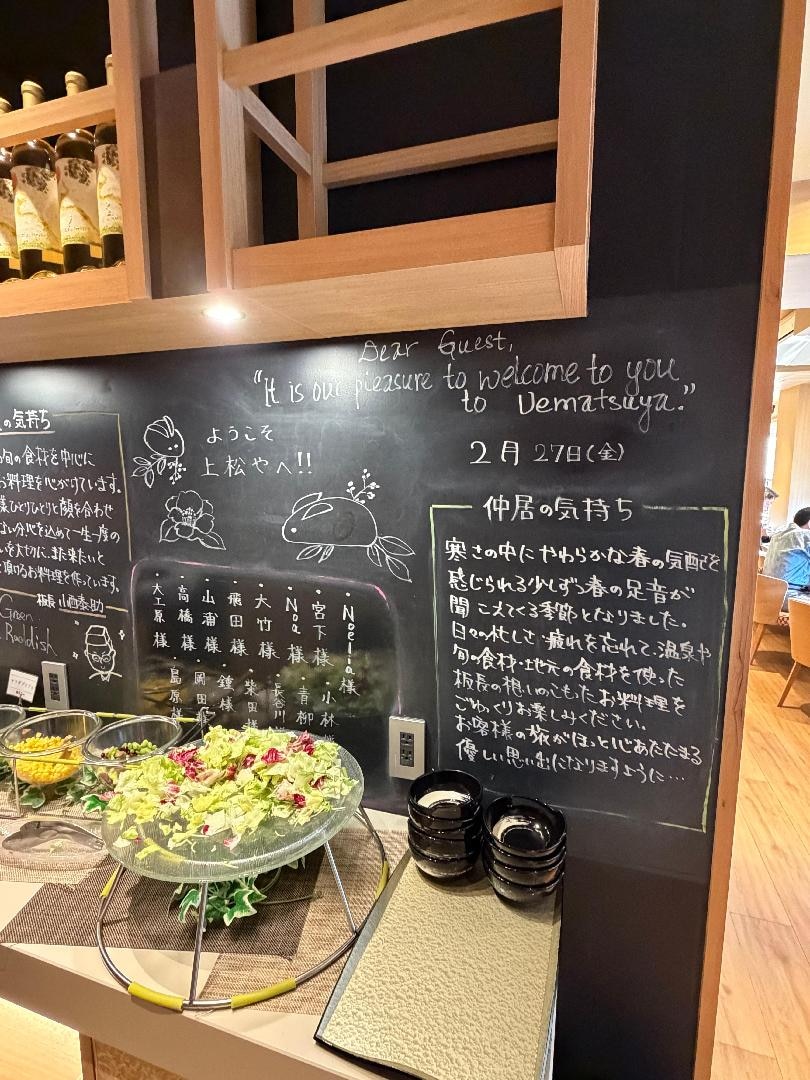 Dear Guest,
"It is our pleasure to welcome to you
to Uematsuya."
2月 27日(金)
ようこそ
上松やへ!!
の気持ち
旬の食材を中心に
お料理を心がけています。
様ひとりひとりと顔を合わせ
を大切に、また来たいと
頂けるお料理を作っています。
板長 小西泰助
Green
・Noelia様
・宮下様
・Noa様
・大竹様
・飛田様
・山浦様
・高橋様
・大工原様
・小林
・青柳
・長谷川
・柴田様
・鍾様
・岡田様
・島原様
仲居の気持ち
寒さの中にやわらかな春の気配を
感じられる少しずつ春の足音が
聞こえてくる季節となりました。
日々の忙しさ・疲れを忘れて、温泉や
旬の食材・地元の食材を使った
板長の想いのこもったお料理を
ごゆっくりお楽しみください。
お客様の旅がほっと心あたたまる
優しい思い出になりますように…